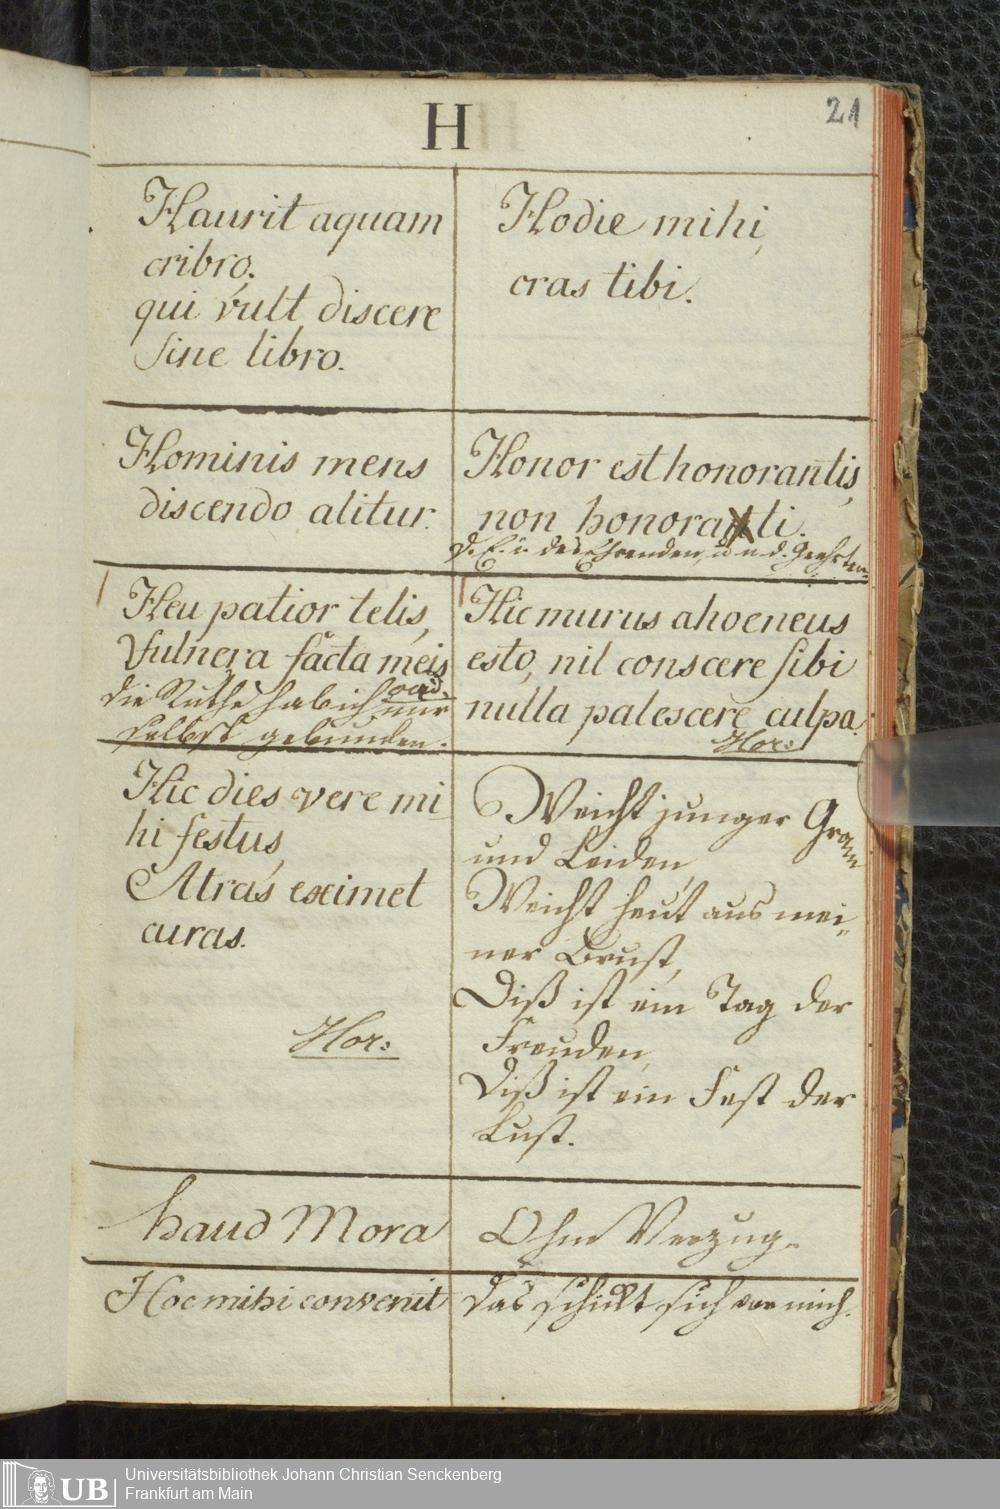 H
21
Haurit aquam
cribro,
qui vult discere
sine libro.
Hodie mihi,
cras tibi.
Hominis mens
discendo alitur.
Honor est honorantis,
non honorati.
d. E. i. des Ehrenden, u n. d. Geehrten
Heu patior telis,
Vulnera facta meis
ovid.
die Ruthe hab ich mir
selbst gebunden.
Hic murus ahoeneus
esto, nil conscere sibi
nulla palescere culpa.
Hor:
Hic dies vere mi
hi festus,
Atras eximet
curas.
Hor:
Weicht junger Gram
und Leiden,
Weicht heut aus mei-
ner Brust,
Diß ist ein Tag der
Freuden,
Diß ist ein Fest der
Lust.
haud Mora
Ohne Verzug.
Hoc mihi convenit
das schickt sich vor mich.
UB
Universitätsbibliothek Johann Christian Senckenberg
Frankfurt am Main